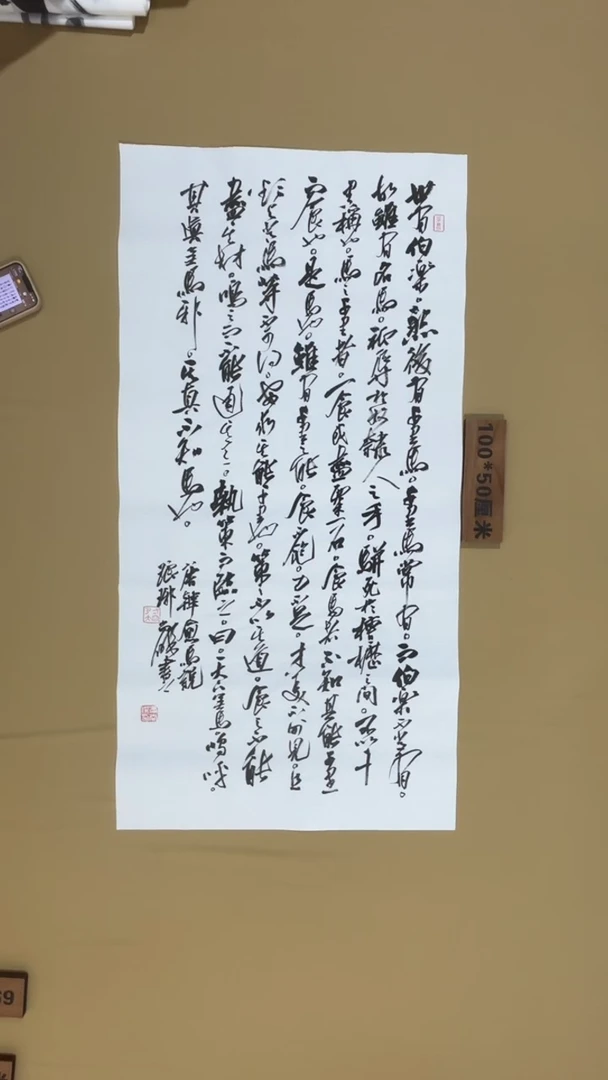 世有伯樂。然後有千里馬。千里馬常有。而伯樂不常有。
故雖有名馬。祇辱於奴隸人之手。駢死於槽櫪之間。不以千
里稱也。馬之千里者。一食或盡粟一石。食馬者不知其能千里
而食也。是馬也。雖有千里之能。食不飽。力不足。才美不外見。且
欲與常馬等不可得。安求其能千里也。策之不以其道。食之不能
盡其材。鳴之而不能通其意。執策而臨之。曰。天下無馬嗚呼。
其真無馬邪。其真不知馬也。
唐韓愈馬說
瑯琊 書
100*50厘米
69